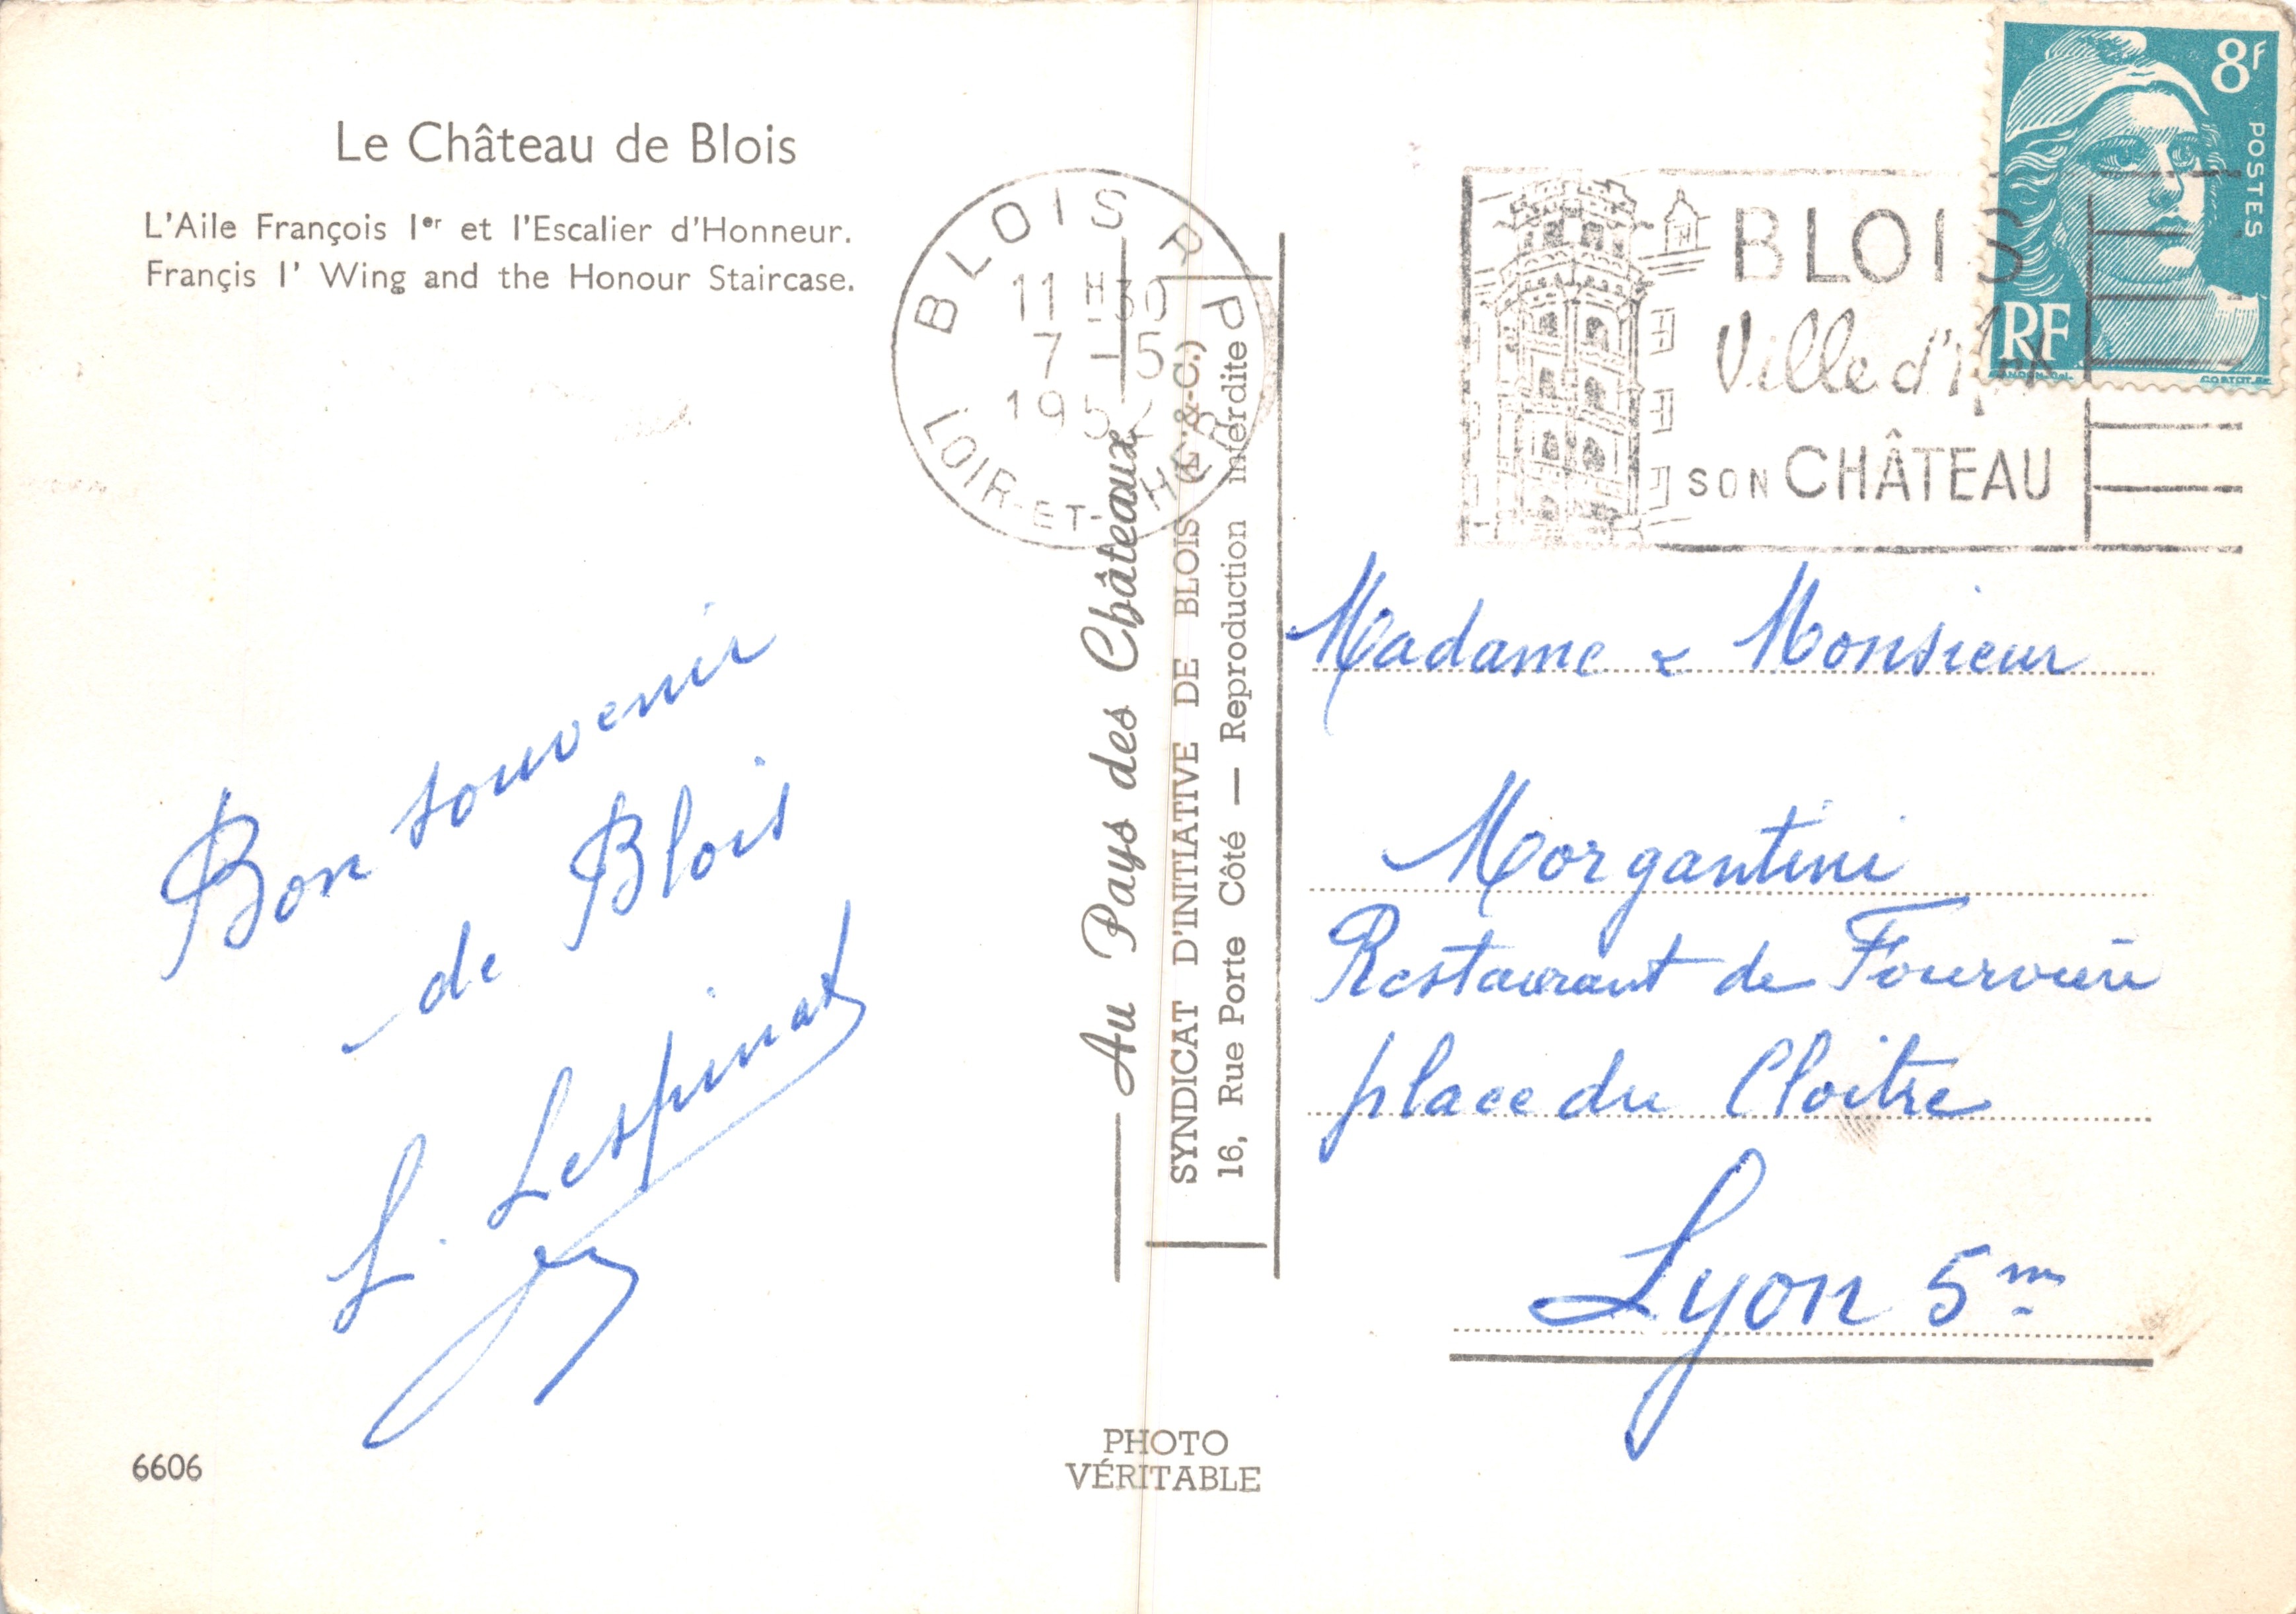 Le Château de Blois
L'Aile François Ier et l'Escalier d'Honneur.
Françis I' Wing and the Honour Staircase.
BLOIS R P
11 H 30
7 - 5
195
LOIR-ET-CHER
BLOIS
Ville d'Art
SON CHÂTEAU
8F
POSTES
RF
Bon souvenir
de Blois
L. Lespinat
Au Pays des Châteaux
SYNDICAT D'INITIATIVE DE BLOIS (L.-&-C.)
16, Rue Porte Côté — Reproduction interdite
Madame & Monsieur
Morgantini
Restaurant de Fourvière
place du Cloitre
Lyon 5me
6606
PHOTO
VÉRITABLE